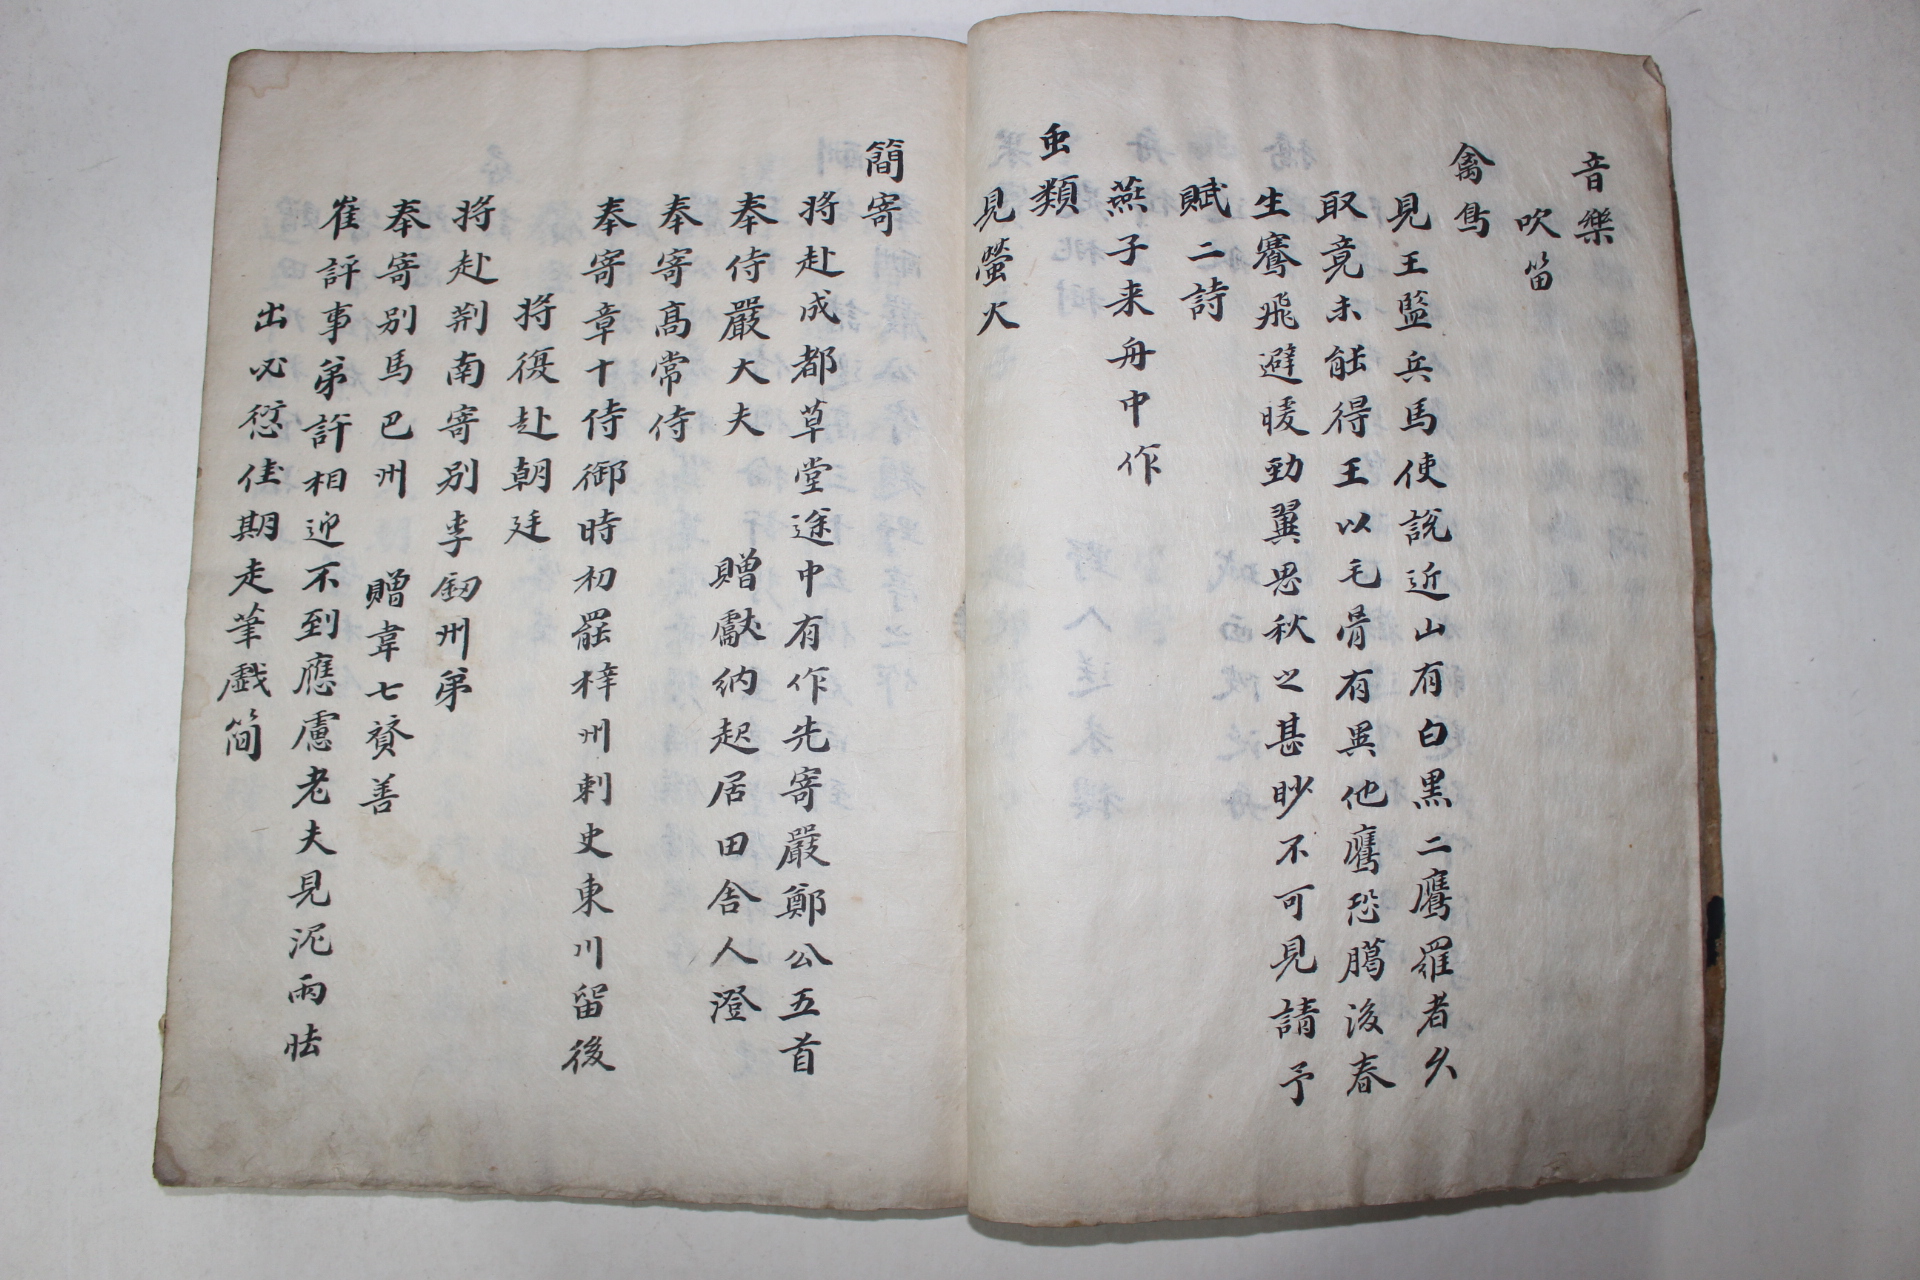 音樂
吹笛
禽鳥
見王監兵馬使說近山有白黑二鷹羅者久
取竟未能得王以毛骨有異他鷹恐臈後春
生騫飛避暖勁翼思秋之甚眇不可見請予
賦二詩
燕子来舟中作
虫類
見螢火
簡寄
將赴成都草堂途中有作先寄嚴鄭公五首
奉侍嚴大夫 贈獻納起居田舍人澄
奉寄高常侍
奉寄章十侍御時初罷梓州刺史東川留後
將復赴朝廷
將赴荆南寄別李劒州弟
奉寄別馬巴州 贈韋七贊善
崔評事弟許相迎不到應慮老夫見泥雨怯
出必愆佳期走筆戲简